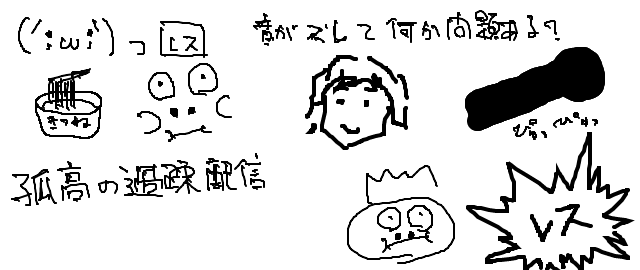 (´;ω;`)っ レス
音がズレて何か問題ある?
きつね
孤高の過疎配信
レス